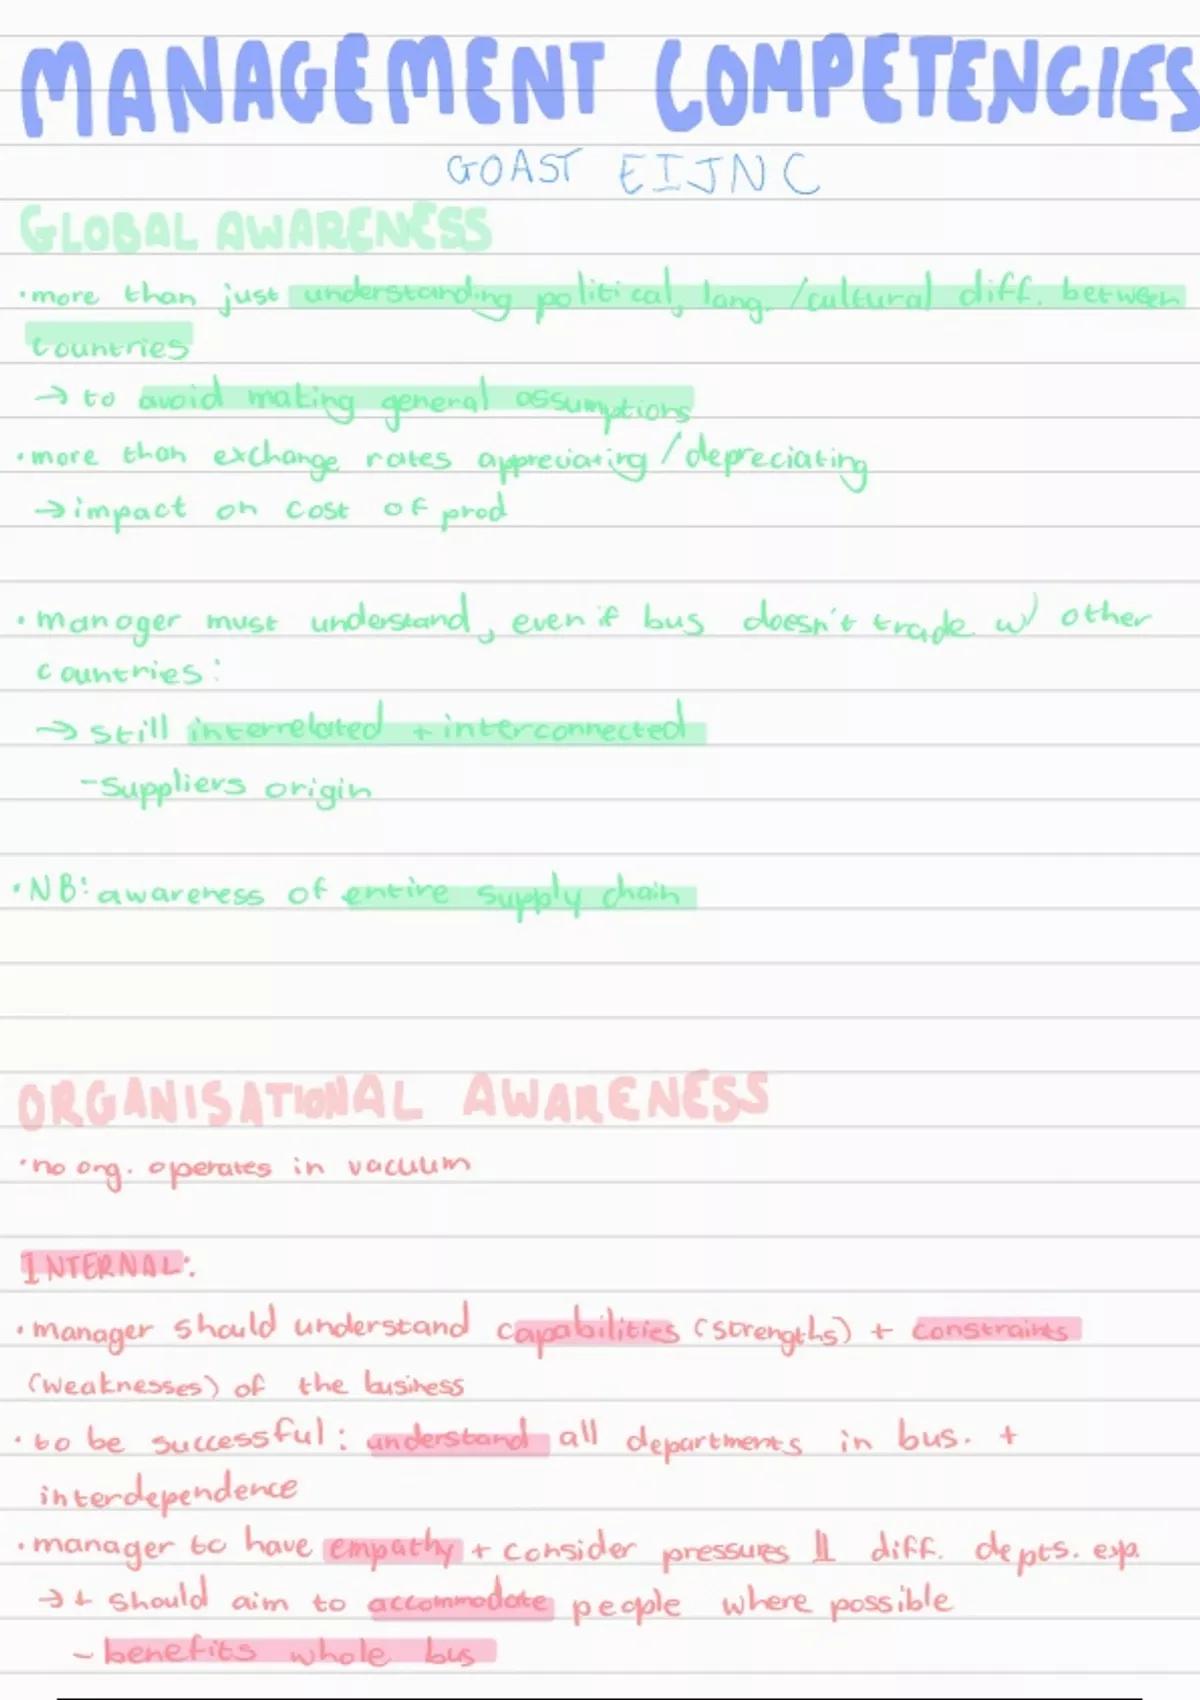 MANAGEMENT COMPETENCIES
GOAST EIJNC
GLOBAL AWARENESS
• more than just understanding political, lang. /cultural diff. between
countries
→ to avoid making general assumptions
• more than exchange rates appreciating / depreciating
→ impact on cost of prod
• manager must understand, even if bus doesn't trade w/ other
countries:
→ still interrelated + interconnected
- suppliers origin
• NB: awareness of entire supply chain
ORGANISATIONAL AWARENESS
• no org. operates in vacuum
INTERNAL:
• manager should understand capabilities (strengths) + constraints
(weaknesses) of the business
• to be successful: understand all departments in bus. +
interdependence
• manager to have empathy + consider pressures diff. depts. exp.
→ + should aim to accommodate people where possible
- benefits whole bus